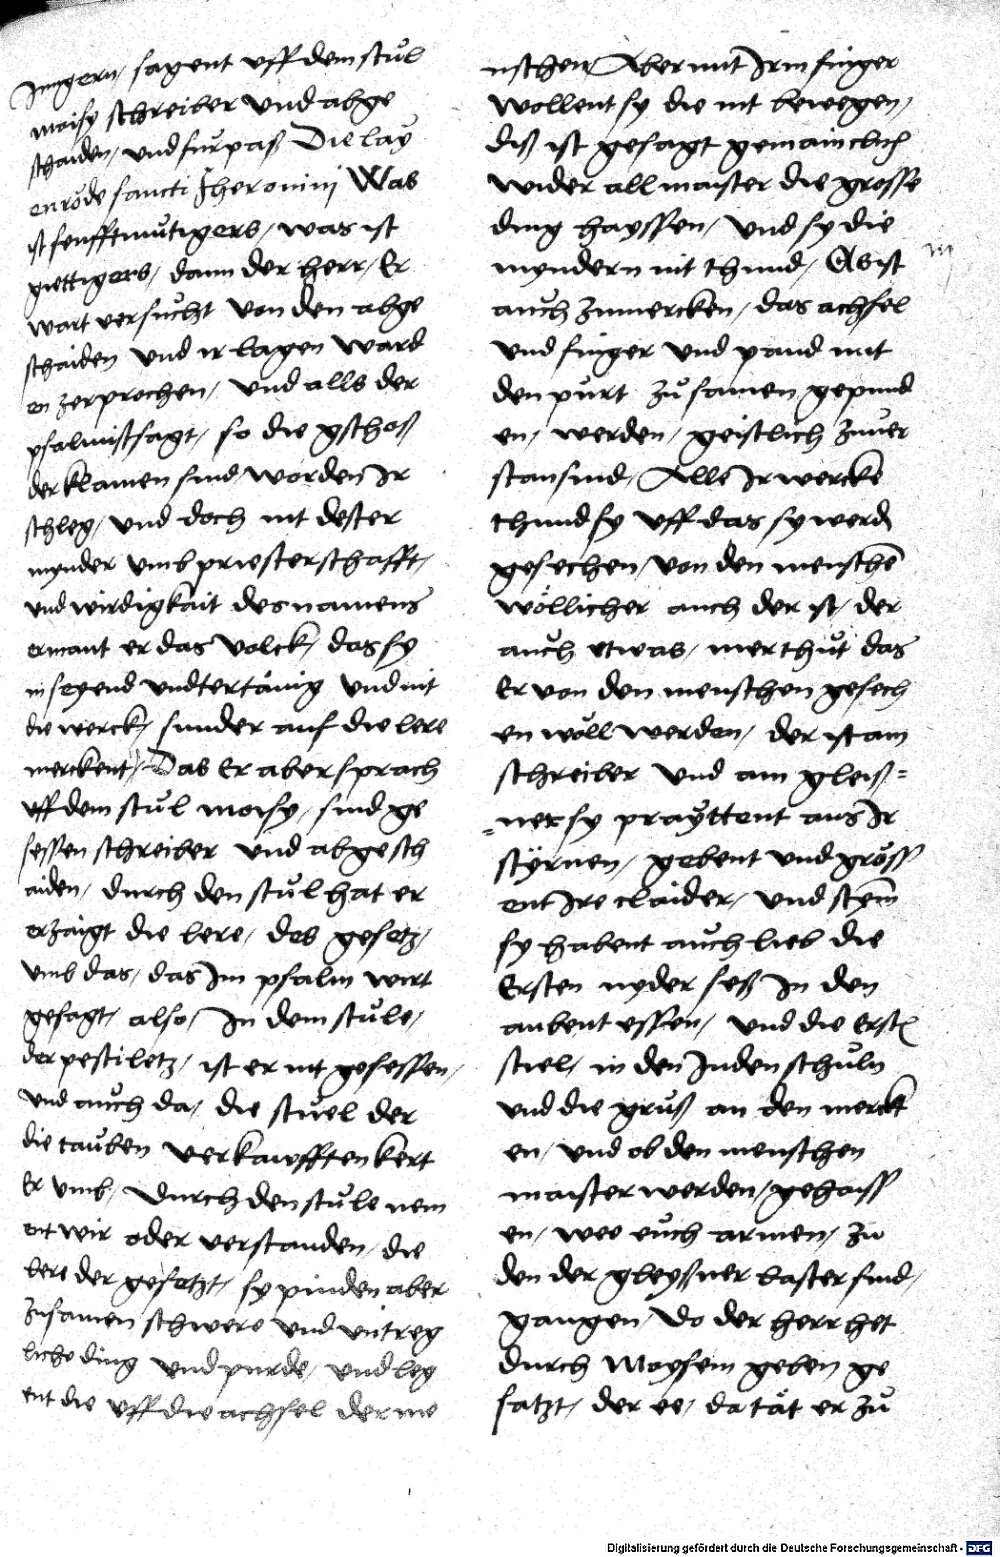 Jungern, sagent uff dem stůl
moisy schreiber und abge
schaiden, und fürpaß Die lay
en röde sancti Jheronimj Was
ist senfftmůtigers, was ist
giettigers, dann der herr, Er
wart versůcht von den abge
schaiden und ir lagen ward
en zerprochen, und alls der
psalmist sagt, so die gschoß
der klainen sind worden Ir
schleg, und doch nit dester
mynder umb priesterschafft,
und wirdigkait des namens
ermant er das volck, das sy
in seyend undtertänig und nit
die werck, sunder auf die lere
merckent, Das Er aber sprach
uff dem stůl moisy, sind ge
sessen schreiber und abgesch
aiden, durch den stůl hat er
erzaigt die lere, des gesetz,
umb das, das Im psalm wirt
gesagt, also, In dem stůle,
der pestiletz, ist er nit gesessen,
und auch da, die stůel der
die tauben verkawfften kert
Er umb, durch den stůle nem
ent wir oder verstanden, die
lere der gesetzt, sy pinden aber
zusamen schwere und untreg
liche ding und purde, und leg
ent die uff die achsel der me
nschen Aber mit Irm finger
wollent sy die nit bewegen,
diß ist gesagt gemaincklich
wider all maister die grosse
ding hayssen, und sy die
myndern nit thund, Es ist
auch zumercken, das achsel
und finger und pand mit
den pürt zů samen gepund
en, werden, geistlich zuver
stan sind, Alle Ir wercke
thund sy uff das sy werd
gesechen, von den menschē
wöllicher auch der ist, der
auch etwas, mer thůt das
Er von den menschen gesech
en wöll werden, der ist ain
schreiber und ain gleiß=
=ner sy prayttent aus Ir
styrnen, gebent und gröss
ent Ire claider, und stem̄
sy habent auch lieb die
Ersten nyder seß In den
aubent essen, und die Erstē
stiel, in den Juden schůln
und die grůß an den merckt
en, und ob den menschen
maister werden, gehaiss
en, wee euch armen, zu
den der gleyßner laster sind,
gangen, do der herr het
durch Moysem geben ge
satzt, der ee, da tät er zů
Digitalisierung gefördert durch die Deutsche Forschungsgemeinschaft - DFG